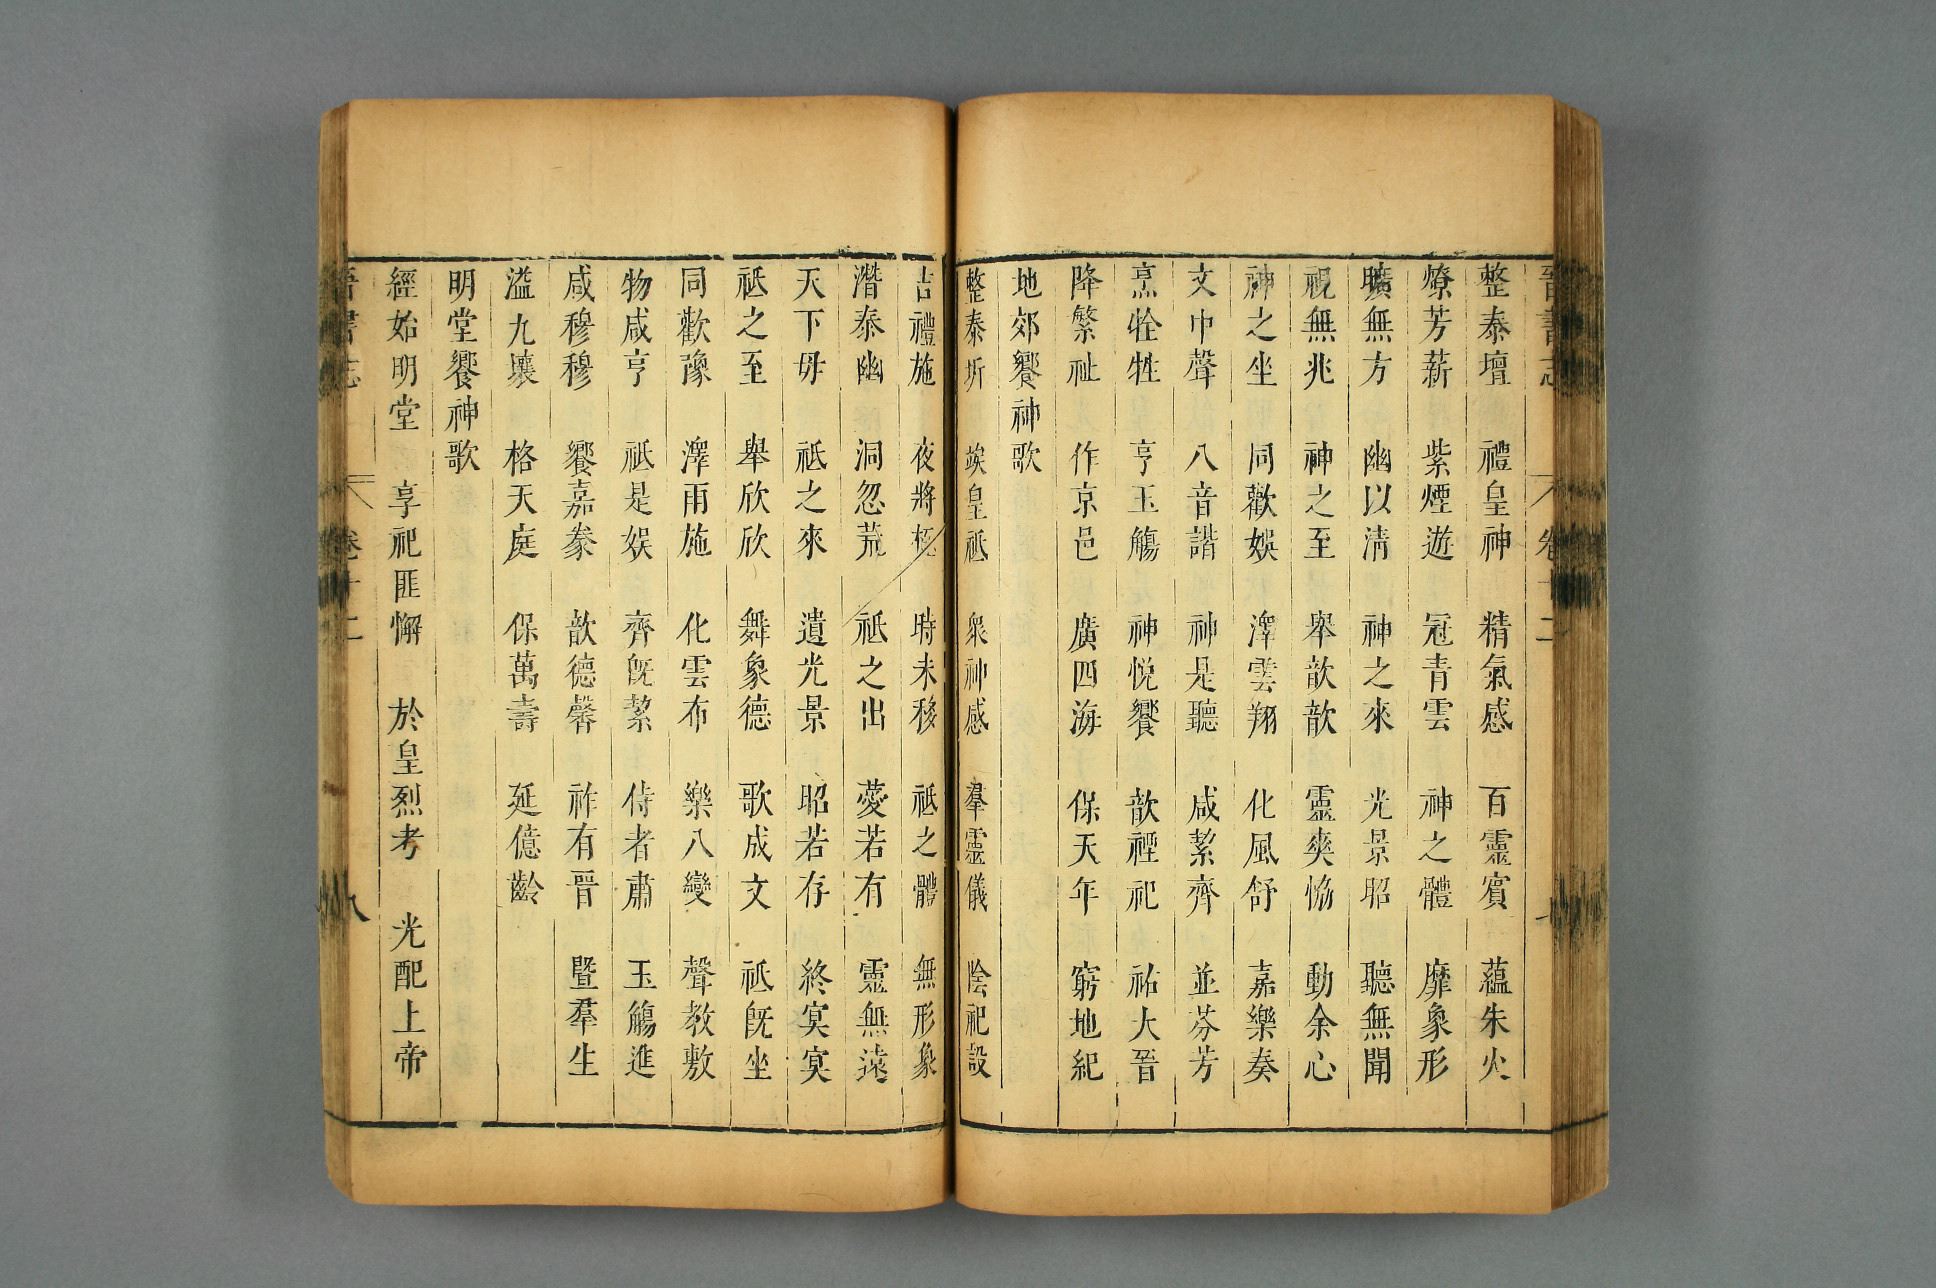 晉書志 卷十二
整泰壇 禮皇神 精氣感 百靈賓 蘊朱火
燎芳薪 紫煙遊 冠青雲 神之體 靡象形
曠無方 幽以清 神之來 光景昭 聽無聞
視無兆 神之至 舉歆歆 靈爽恊 動余心
神之坐 同歡娛 澤雲翔 化風舒 嘉樂奏
文中聲 八音諧 神是聽 咸絜齊 並芬芳
烹牷牲 亨玉觴 神悅饗 歆禋祀 祐大晉
降繁祉 作京邑 廣四海 保天年 窮地紀
地郊饗神歌
整泰折 竢皇祇 衆神感 羣靈儀 陰祀設
吉禮施 夜將極 時未移 祇之體 無形象
潛泰幽 洞忽荒 祇之出 薆若有 靈無遠
天下毋 祇之來 遺光景 昭若存 終冥冥
祇之至 舉欣欣 舞象德 歌成文 祇旣坐
同歡豫 澤雨施 化雲布 樂八變 聲教敷
物咸亨 祇是娛 齊旣絜 侍者肅 玉觴進
咸穆穆 饗嘉豢 歆德馨 祚有晉 暨羣生
溢九壤 格天庭 保萬壽 延億齡
明堂饗神歌
經始明堂 享祀匪懈 於皇烈考 光配上帝
晉書志 卷十二 八